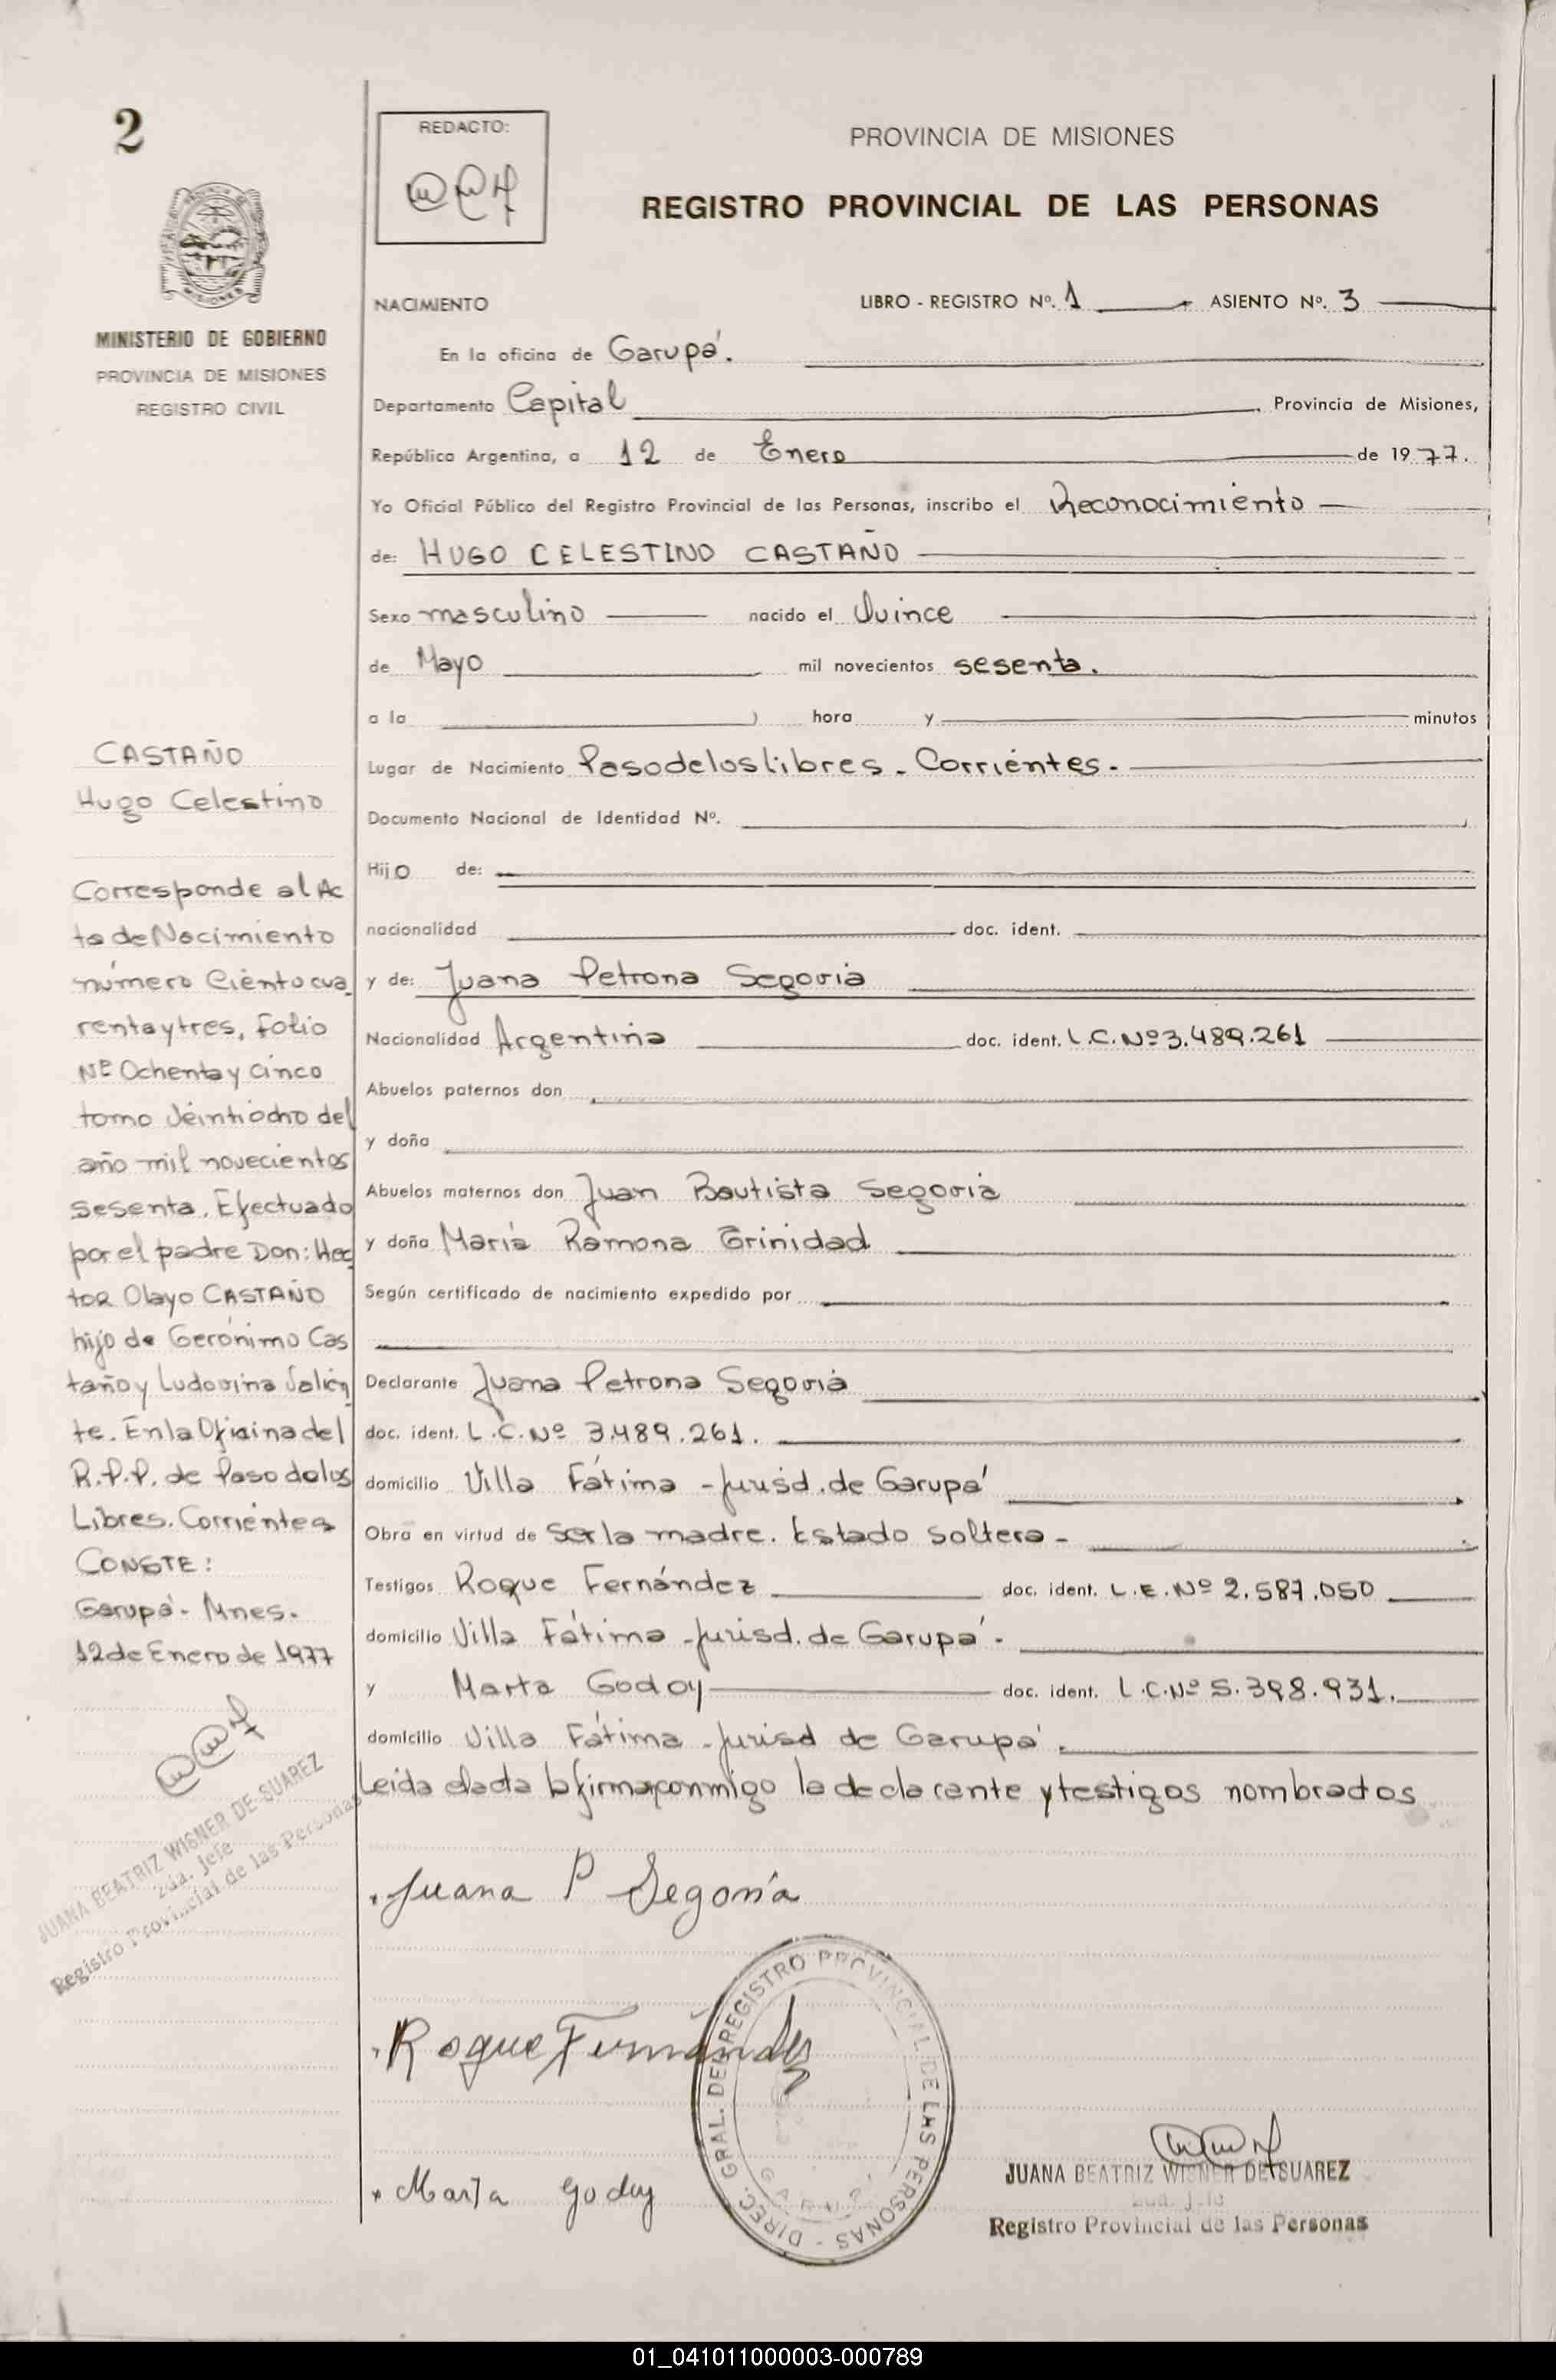 2
MINISTERIO DE GOBIERNO
PROVINCIA DE MISIONES
REGISTRO CIVIL
CASTAÑO
Hugo Celestino
Corresponde al Ac
ta de Nacimiento
número Ciento cua
renta y tres, folio
Nº Ochenta y cinco
tomo Veintiocho del
año mil novecientos
sesenta. Efectuado
por el padre Don: Hec
tor Olayo CASTAÑO
hijo de Gerónimo Cas
taño y Ludovina Valien
te. En la Oficina del
R.P.P. de Paso de los
Libres. Corrientes
CONSTE:
Garupá - Mnes.
12 de Enero de 1977
JUANA BEATRIZ WISNER DE SUAREZ
2da. Jefe
Registro Provincial de las Personas
REDACTO:
PROVINCIA DE MISIONES
REGISTRO PROVINCIAL DE LAS PERSONAS
NACIMIENTO LIBRO - REGISTRO Nº. 1 ASIENTO Nº. 3
En la oficina de Garupá.
Departamento Capital Provincia de Misiones,
República Argentina, a 12 de Enero de 1977.
Yo Oficial Público del Registro Provincial de las Personas, inscribo el Reconocimiento
de: HUGO CELESTINO CASTAÑO
Sexo masculino nacido el Quince
de Mayo mil novecientos sesenta.
a la hora y minutos
Lugar de Nacimiento Paso de los Libres - Corrientes.
Documento Nacional de Identidad Nº.
Hijo de:
nacionalidad doc. ident.
y de: Juana Petrona Segovia
Nacionalidad Argentina doc. ident. L.C. Nº 3.489.261
Abuelos paternos don
y doña
Abuelos maternos don Juan Bautista Segovia
y doña María Ramona Trinidad
Según certificado de nacimiento expedido por
Declarante Juana Petrona Segovia
doc. ident. L.C. Nº 3.489.261.
domicilio Villa Fátima - Jurisd. de Garupá
Obra en virtud de Ser la madre. Estado soltera -
Testigos Roque Fernández doc. ident. L.E. Nº 2.587.050
domicilio Villa Fátima - Jurisd. de Garupá -
y Marta Godoy doc. ident. L.C. Nº 5.398.931.
domicilio Villa Fátima - Jurisd de Garupá.
Leida el acta la firman conmigo la declarante y testigos nombrados
Juana P Segovia
Roque Fernández
DIREC. GRAL. DEL REGISTRO PROVINCIAL DE LAS PERSONAS -
GARUPA
Marta Godoy
JUANA BEATRIZ WISNER DE SUAREZ
2da. Jefe
Registro Provincial de las Personas
01_041011000003-000789